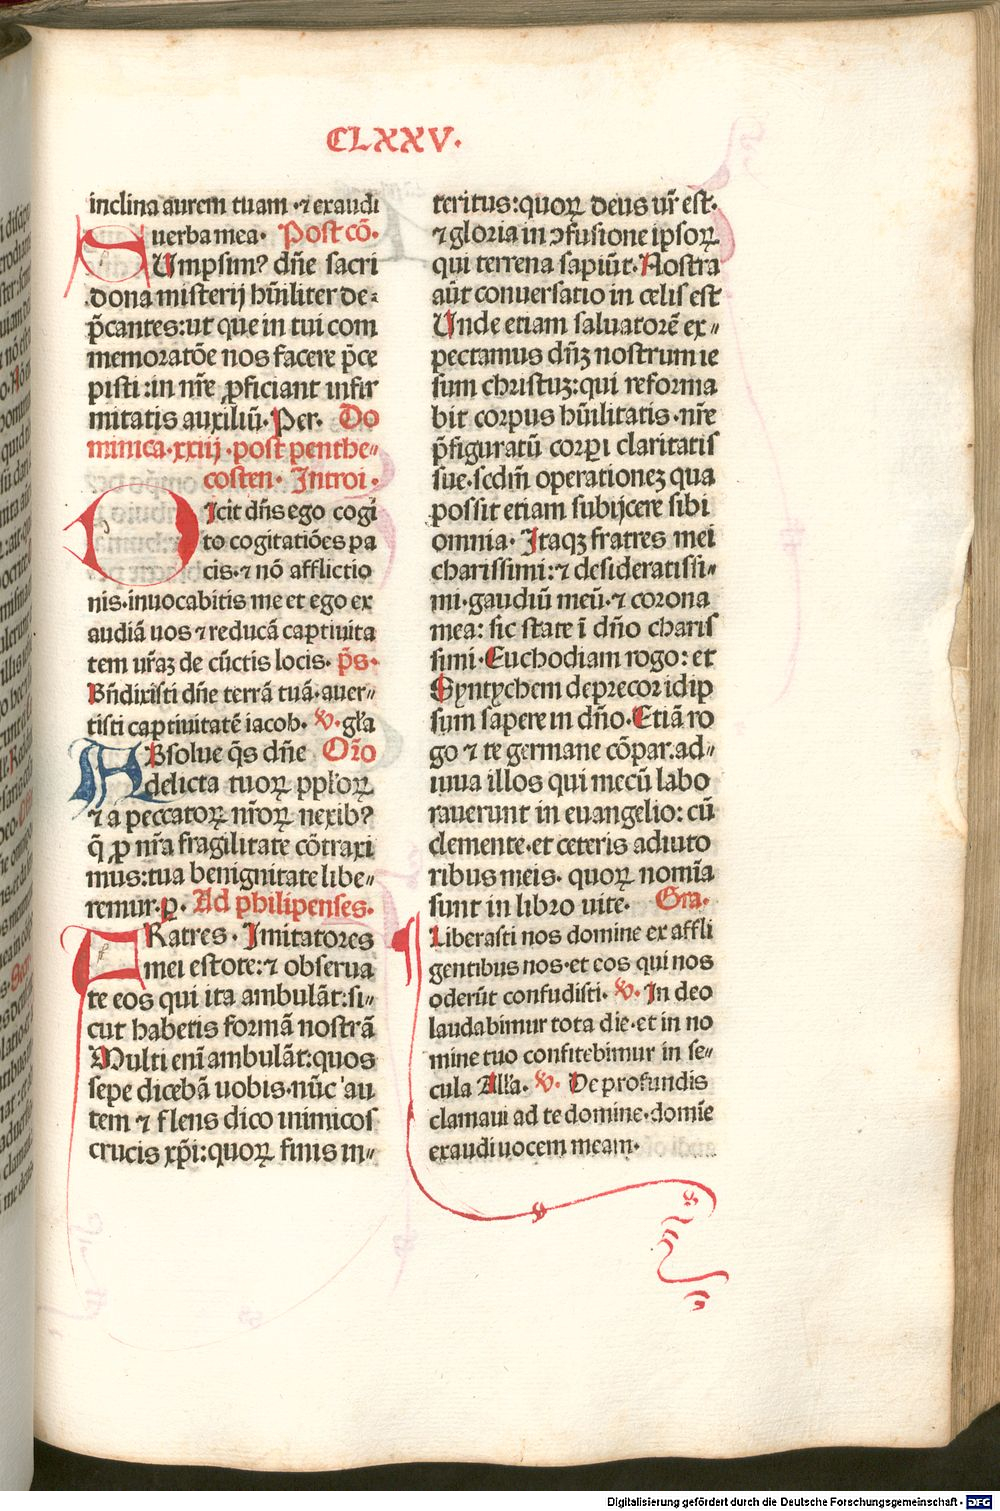 CLXXV.
inclina aurem tuam ·⁊ exaudi
uerba mea· Post cõ·
SUmpsim? dñe sacri
dona misterij hũiliter de⸗
p̃cantes:ut que in tui com
memoratõe nos facere p̃ce
pisti:in nr̃e ꝓficiant infir
mitatis auxiliũ·Per. Do
minica·xxiij·post penthe⸗
costen· Introi·
DIcit dñs ego cogi
to cogitatiões pa
cis·⁊ nõ afflictio
nis·inuocabitis me et ego ex
audiã uos ⁊ reducã captiuita
tem ur̃aꝫ de cũctis locis· p̃s·
Bñdixisti dñe terrã tuã·auer⸗
tisti captiuitatẽ iacob· v̷· gl̃a
ABsolue q̃s dñe Or̃o
delicta tuoꝝ ppl̃oꝝ
⁊ a peccatoꝝ nr̃oꝝ nexib?
q̃ ꝓ nr̃a fragilitate cõtraxi
mus:tua benignitate libe⸗
remur·ꝑ· Ad philipenses·
FRatres· Imitatores
mei estote:⁊ obserua
te eos qui ita ambulãt:si⸗
cut habetis formã nostrã
Multi eni ambulãt:quos
sepe dicebã uobis·nũc au
tem ⁊ flens dico inimicos
crucis xp̃i:quoꝝ finis in⸗
teritus:quoꝝ deus ur̃ est·
⁊ gloria in ↄfusione ipsoꝝ
qui terrena sapiũt·Nostra
aũt conuersatio in celis est
Unde etiam saluatorẽ ex⸗
pectamus dñꝫ nostrum ie
sum christuꝫ:qui reforma
bit corpus hũilitatis·nr̃e
p̃figuratũ corꝑi claritatis
sue·scdm̃ operationeꝫ qua
possit etiam subijcere sibi
omnia· Itaqꝫ fratres mei
charissimi:⁊ desideratissi⸗
mi·gaudiũ meũ·⁊ corona
mea: sic state ĩ dño charis
simi·Euchodiam rogo: et
Syntychem deprecor idip
sum sapere in dño·Etiã ro
go ⁊ te germane cõpar·ad⸗
iuua illos qui mecũ labo
rauerunt in euangelio: cũ
clemente·et ceteris adiuto
ribus meis· quoꝝ nomĩa
sunt in libro uite· Gra·
Liberasti nos domine ex affli
gentibus nos·et eos qui nos
oderũt confudisti· v̷· In deo
laudabimur tota die·et in no
mine tuo confitebimur in se⸗
cula All̃a· v̷· De profundis
clamaui ad te domine·domĩe
exaudi uocem meam·
Digitalisierung gefördert durch die Deutsche Forschungsgemeinschaft - DFG